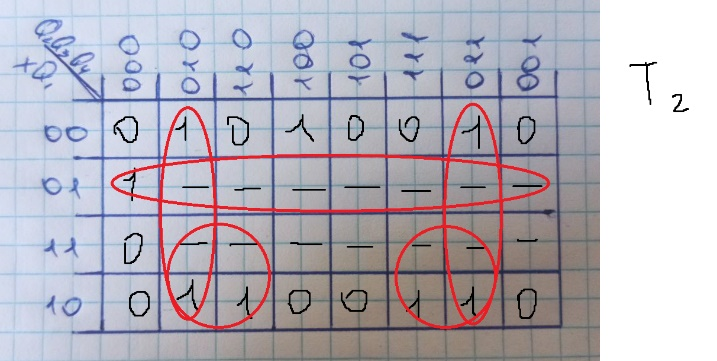 Q₂Q₃Q₄
xQ₁
000 010 110 100 101 111 011 001
T₂
00 0 1 0 1 0 0 1 0
01 1 — — — — — — —
11 0 — — — — — — —
10 0 1 1 0 0 1 1 0